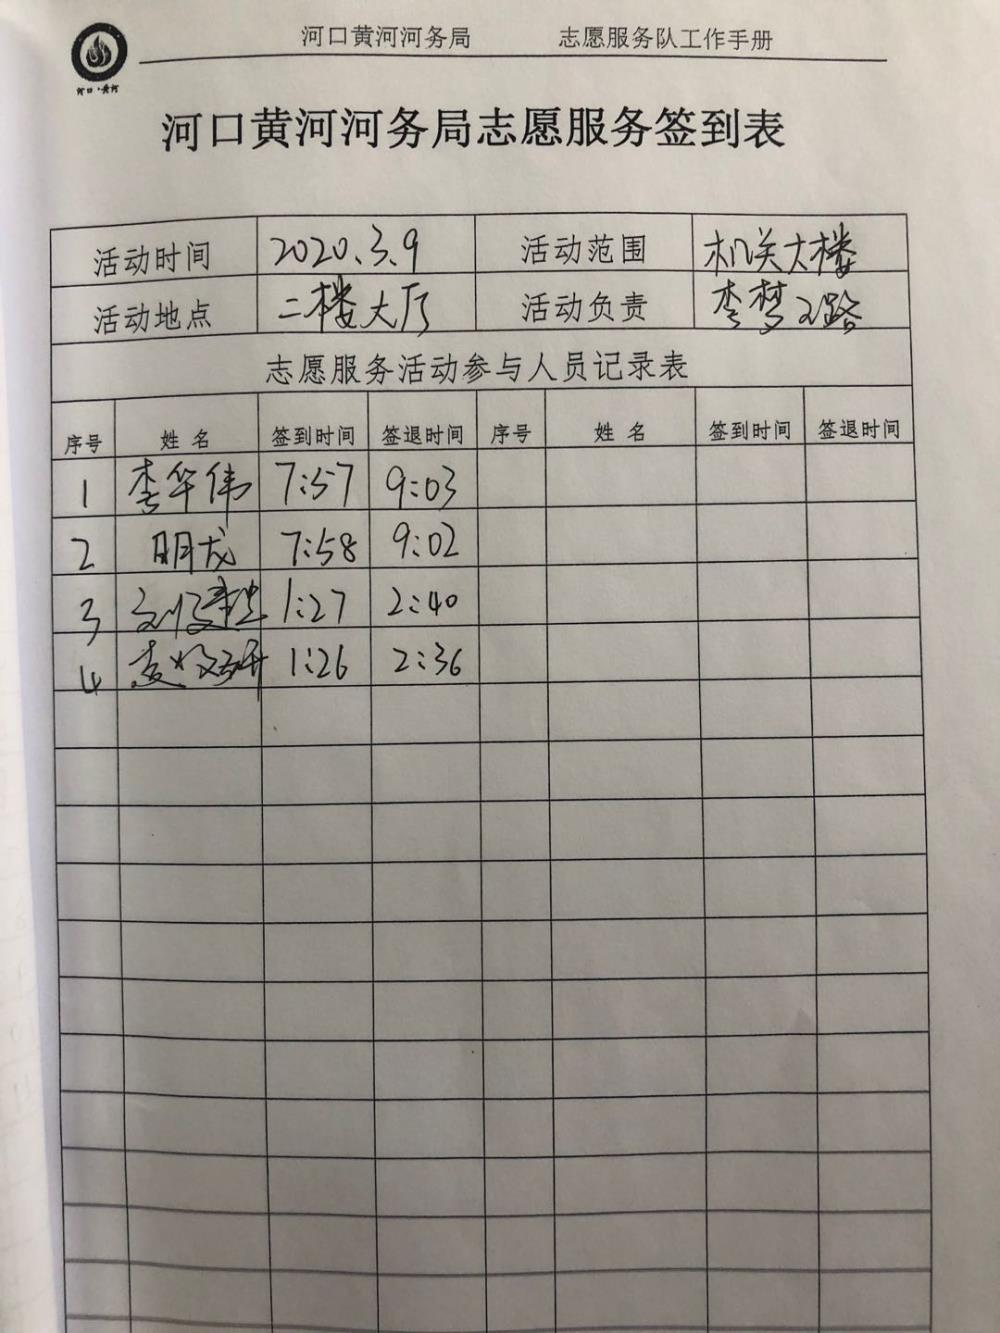 河口黄河河务局 志愿服务队工作手册
河口·黄河
河口黄河河务局志愿服务签到表
活动时间 2020.3.9 活动范围 机关大楼
活动地点 二楼大厅 活动负责 李梦璐
志愿服务活动参与人员记录表
序号 姓名 签到时间 签退时间 序号 姓名 签到时间 签退时间
1 李华伟 7:57 9:03
2 明龙 7:58 9:02
3 1:27 2:40
4 1:26 2:36